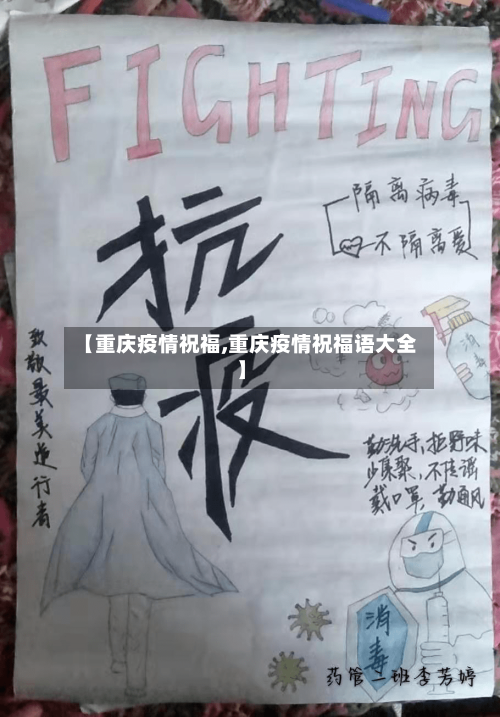 FIGHTING
抗疫
隔离病毒
不隔离爱
【重庆疫情祝福,重庆疫情祝福语大全
】
致敬最美逆行者
消毒
勤洗手,拒野味
少集聚,不传谣
戴口罩,勤通风
消毒
药管一班李芳婷